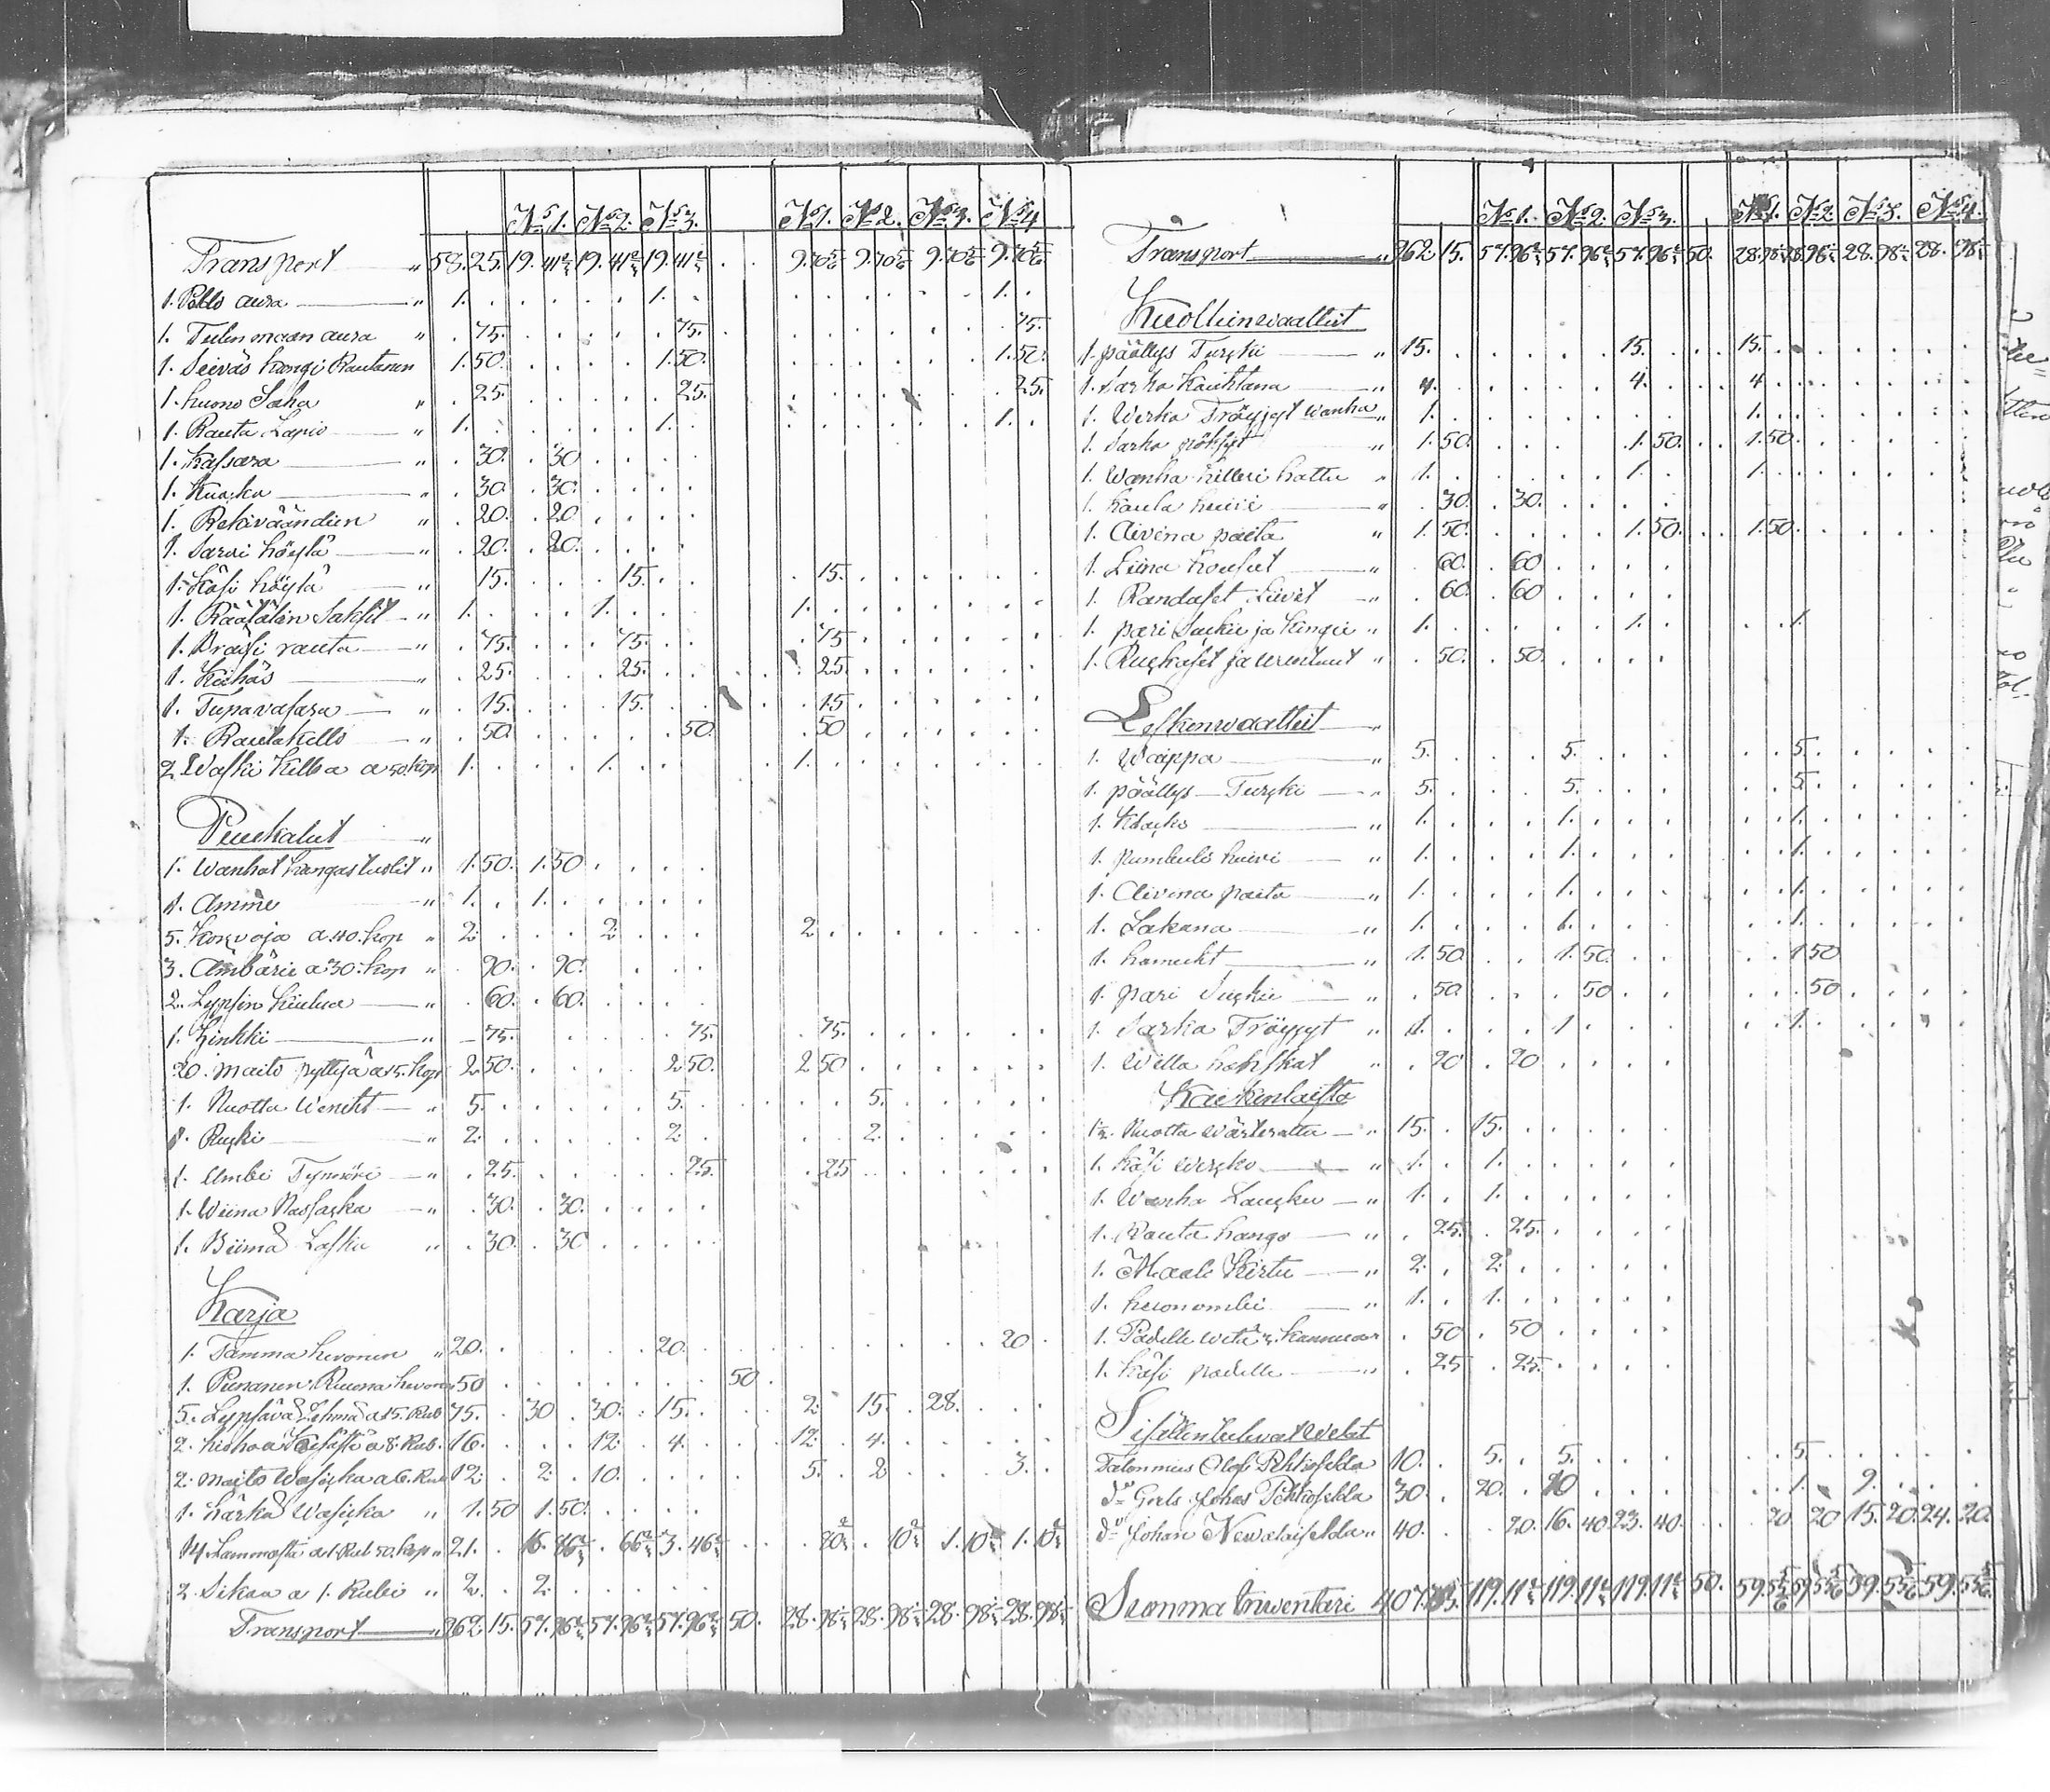 No 1. No 2. No 3. No 1. No 2. No 3. No 4
Transport " 58. 25. 19. 41 2/3 19. 41 2/3 19. 41 2/3 . . 9. 70 5/6 9. 70 5/6 9. 70 5/6 9. 70 5/6
1. Peldo aura " 1. 1. 1.
1. Tulen maan aura " 75. 75. 75.
1. Seiväs kangi Rautanen 1. 50. 1. 50. 1. 50.
1. huono Saha " 25. 25. 25.
1. Rauta Lapio " 1. 1. 1.
1. Kassara " 30. 30
1. Kuocka " 30. 30.
1. Rekiväändien " 20. 20
1. Sarvi höylä " 20. 20.
1. Käsi höylä " 15. 15. 15.
1. Räätälin Saksit " 1. 1. 1.
1. Präsi rauta " 75. 75. 75
1. Kiehäs " 25. 25. 25.
1. Tupavasara " 15. 15. 15
1. Rautakello " 50. 50. 50
2. Waski Kelloa a 50. kop 1. 1. 1.
Puukalut "
1. Wanhat kangastuolit " 1. 50. 1. 50
1. Amme " 1. 1.
5. Korvoja a 40. kop " 2. 2. 2
3. Ämbärie a 30. kop " 90. 90.
2. Lypsin kiulua " 60. 60.
1. Kinkki " 75. 75. 75.
20. maito pyttyä a 15. kop 2 50. 2 50. 2 50
1. Nuotta Wenehet " 5. 5. 5.
1. Rucki " 2. 2. 2.
1. Umbi Tynnöri " 25. 25. 25
1. Wiina Nassacka " 30. 30.
1. Biimä Lasku " 30. 30
Karja
1. Tamma hevonen " 20. 20. 20
1. Punanen Ruuna hevonen 50 50.
5. Lypsävä Lehmä a 15. Rub 75. 30. 30. 15. 2. 15. 28.
2. hiehoa a 8. Rub. 16. 12. 4. 12. 4.
2. maito Wasicka a 6. Rub 12. 2. 10. 5. 2 3.
1. härkä Wasicka " 1. 50 1. 50.
14 Lammasta a 1 Rub 50. kop " 21. 16. 86 2/3 . 66 2/3 3. 46 2/3 . 20 1/2 . 10 1/2 1. 10 1/2 1. 10 1/2
2. Sikaa a 1. Rubli " 2. 2.
Transport " 262. 15. 57. 96 2/3 57. 96 2/3 57. 96 2/3 50. 28. 98 1/3 28. 98 1/3 28. 98 1/3 28. 98 1/3
No 1. No 2. No 3. No 1. No 2. No 3. No 4.
Transport " 262 15. 57. 96 2/3 57. 96 2/3 57. 96 2/3 50. 28. 98 1/3 28. 98 1/3 28. 98 1/3 28. 98 1/3
Kuolluinwaattiet
1. päällys Turcki " 15. 15. 15.
1. Sarka Kauhtana " 4. 4. 4
1. Werka Tröyjyt wanha " 1. 1.
1. Sarka pöksyt " 1. 50. 1. 50. 1. 50.
1. Wanha killeri hattu " 1. 1. 1.
1. kaula huivi " 30. 30.
1. Aivina paita " 1. 50. 1. 50. 1. 50.
1. Liina housut " 60. 60
1. Randaset Liivit " 60. 60
1. pari Suckie ja kengie " 1. 1. 1.
1. Ruckaset ja " 50. 50.
Leskenwaattiet "
1. Waippa " 5. 5. 5.
1. päällys Turcki " 5. 5. 5.
1. Klacko " 1. 1. 1.
1. Pumbuli huivi " 1. 1. 1.
1. Aivina paita " 1. 1. 1.
1. Lakana " 1. 1. 1.
1. hamecht " 1. 50 1. 50. 1 50
1. pari Suckie " 50. 50. 50
1. Sarka Tröyjyt " 1. 1 1.
1. Willa hahskat " 20 20
Kaikenlaista
1/2. Nuotta " 15. 15.
1. käsi wercko " 1. 1.
1. Wanha Laucku " 1. 1.
1. Rauta hango " 25. 25.
1. Maali Kirstu " 2. 2.
1. huonombi " 1. 1.
1. Padille wetä kannua " 50 50
1. käsi padille " 25 25.
Sisällentulewat Welat
Talonmies Olof Pehkoselda 10. 5. 5. 5.
do Greels Johas Pehkoselda 30. 20. 10 1. 9.
do Johan Newalaiselda " 40. 20. 16. 40 23. 40. 20 20 15. 20 24. 20
Summa Inwentari 407. 35. 119. 11 2/3 119. 11 2/3 119. 11 2/3 50. 59. 55 5/6 59. 55 5/6 59. 55 5/6 59. 55 5/6